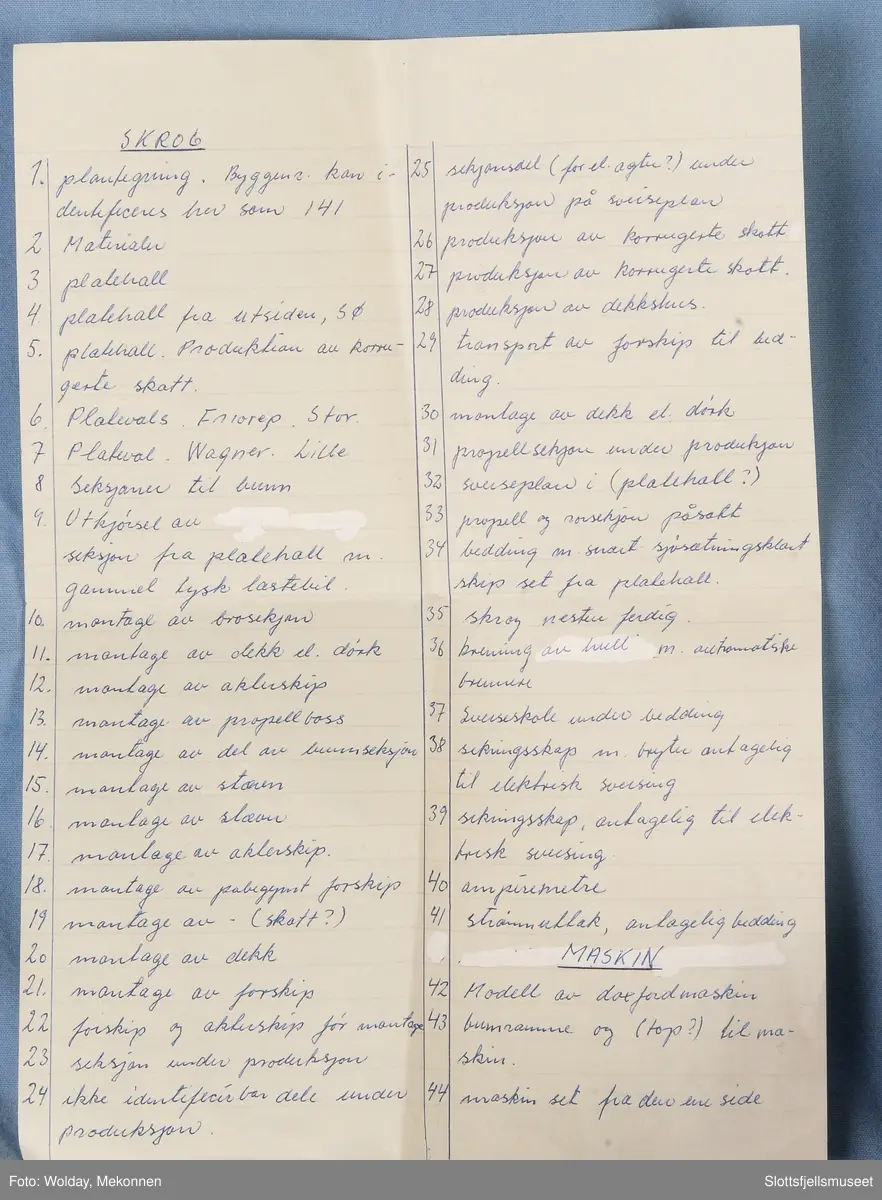 SKROG
1. plantegning. Byggenr. kan i-
dentificeres her som 141
2 Materialer
3 platehall
4. platehall fra utsiden, SØ
5. platehall. Produktion av korru-
gerte skott.
6. Platevals. Friorep. Stor.
7 Plateval. Wagner. Lille
8 Seksjoner til bunn
9. Utkjørsel av
seksjon fra platehall m.
gammel tysk lastebil.
10. montage av broseksjon
11. montage av dekk el. dörk
12. montage av akterskip
13. montage av propellboss
14. montage av del av bunnseksjon
15. montage av stævn
16. montage av stævn
17. montage av akterskip.
18. montage av påbegynt forskip
19 montage av - (skott?)
20 montage av dekk
21. montage av forskip
22 forskip og akterskip før montage
23 seksjon under produksjon
24 ikke identificérbar dele under
produksjon.
25 seksjonsdel (for el. agter?) under
produksjon på sveiseplan
26 produksjon av korrugerte skott
27 produksjon av korrugerte skott.
28 produksjon av dekkshus.
29 transport av forskip til bed-
ding.
30 montage av dekk el. dörk
31 propellseksjon under produksjon
32 sveiseplan i (platehall?)
33 propell og rorseksjon påsatt
34 bedding m. snart sjösætningsklart
skip set fra platehall.
35 skrog nesten ferdig.
36 brening av hull m. automatiske
brennere
37 Sveiseskole under bedding
38 sikringsskap m. bryter antagelig
til elektrisk sveising
39 sikringsskap, antagelig til elek-
trisk sveising.
40 ampiremetre
41 strømuttak, antagelig bedding
MASKIN
42 Modell av doxfordmaskin
43 bunnramme og (top?) til ma-
skin.
44 maskin set fra den ene side
Foto: Wolday, Mekonnen
Slottsfjellsmuseet